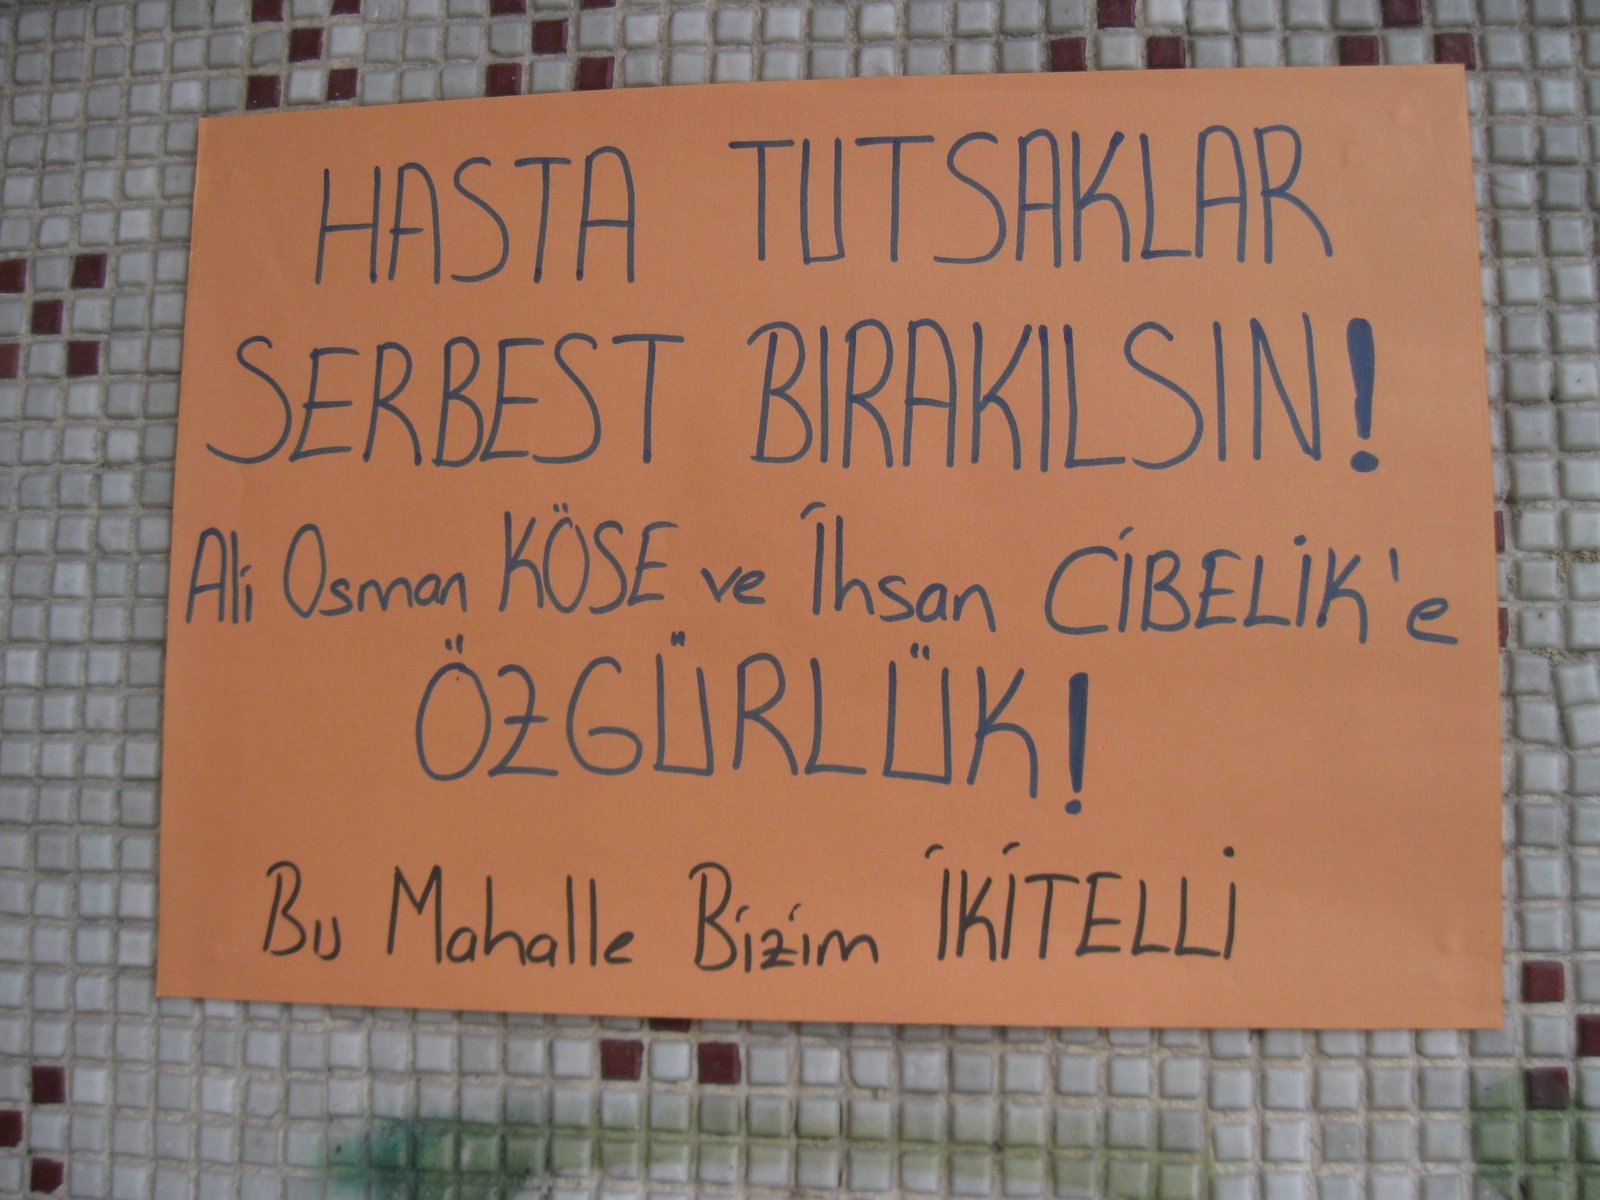 HASTA TUTSAKLAR
SERBEST BIRAKILSIN!
Ali Osman KÖSE ve İhsan CİBELİK'e
ÖZGÜRLÜK!
Bu Mahalle Bizim İKİTELLİ